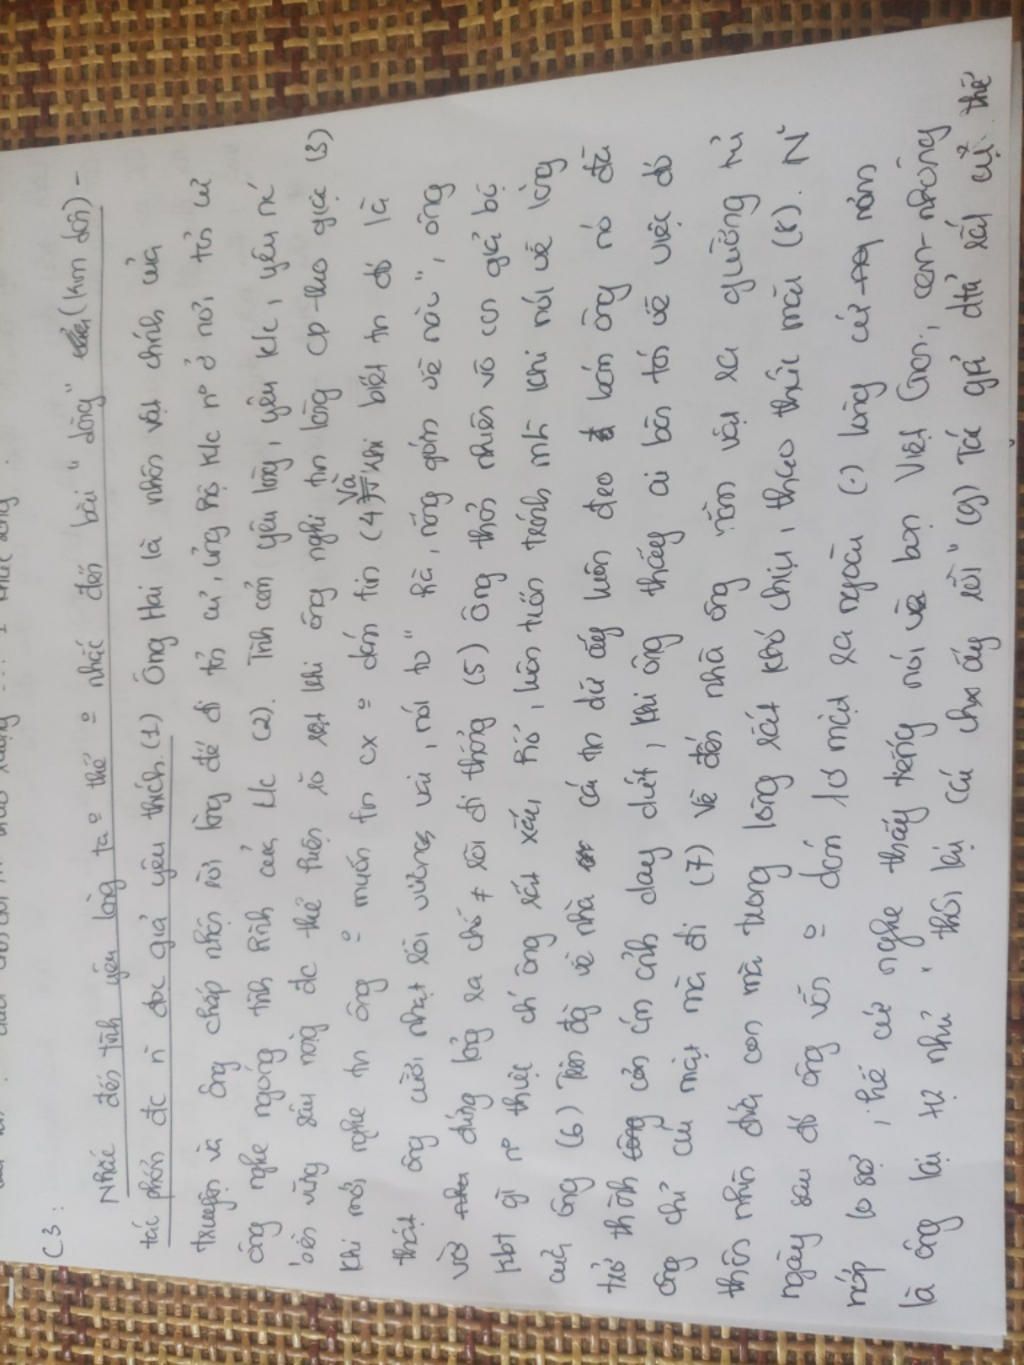 C3:
Nhắc đến tình yêu làng ta = thể = nhắc đến bài "làng" (Kim Lân) -
tác phẩm đc n' đọc giả yêu thích. (1) Ông Hai là nhân vật chính của
truyện và ông chấp nhận rời làng để đi tản cư, ủng hộ k/c nº ở nơi tản cư
ông nghe ngóng tình hình của k/c (2). Tình cảm yêu làng, yêu k/c, yêu nc
bền vững sâu nặng đc thể hiện rõ rệt khi ông nghi tin làng CD theo giặc (3)
Khi mới nghe tin ông = muốn tin cx = dám tin (4) và khi biết tin đó là
thật ông cười nhạt rồi vươn vai, nói to "Hà, nắng gớm về nào", ông
vờ đứng lảng ra chỗ ≠ rồi đi thẳng (5) Ông thản nhiên vô cùng giả bộ
kbt gì nº thực chất ông rất xấu hổ, luôn tuôn tránh mh khi nói về làng
của ông (6) Trên đg về nhà cái tin dữ ấy luôn đeo bám ông nó đã
trở thành cảm ám ảnh day dứt, khi ông thấy ai bàn tới về việc đó
ông chỉ cúi mặt mà đi (7) Về đến nhà ông nằm vật ra giường tủi
thân nhìn đứa con mà trong lòng rất khó chịu, thao thức mãi (8). N'
ngày sau đó ông vẫn = dám ló mặt ra ngoài (-) làng cứ nơm
nớp lo sợ, hễ cứ nghe thấy tiếng nói bọn Việt Gian, cam-nhông
là ông lại tự nhủ "thôi lại cái chuyện ấy rồi" (9) Tác giả đtả rất cụ thể